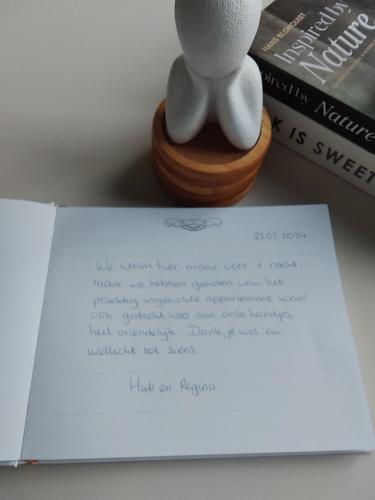 HANS BLOMQUIST
Inspired by
Nature
Inspired by Nature
K IS SWEET
27.02 2024
We waren hier maar voor 1 nacht,
maar we hebben genoten van het
prachtig ingerichte appartement waar
ook gedacht was aan onze hondjes,
heel vriendelijk. Dank je wel en
wellicht tot ziens.
Hub en Regina